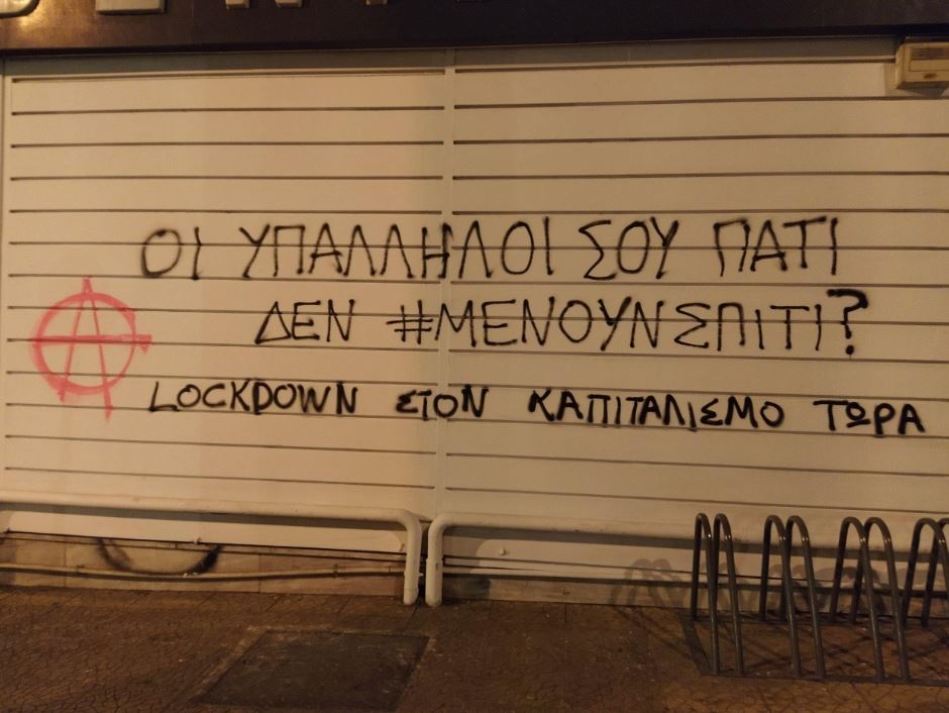 ΟΙ ΥΠΑΛΛΗΛΟΙ ΣΟΥ ΓΙΑΤΙ
ΔΕΝ #ΜΕΝΟΥΝΣΠΙΤΙ?
LOCKDOWN ΣΤΟΝ ΚΑΠΙΤΑΛΙΣΜΟ ΤΩΡΑ